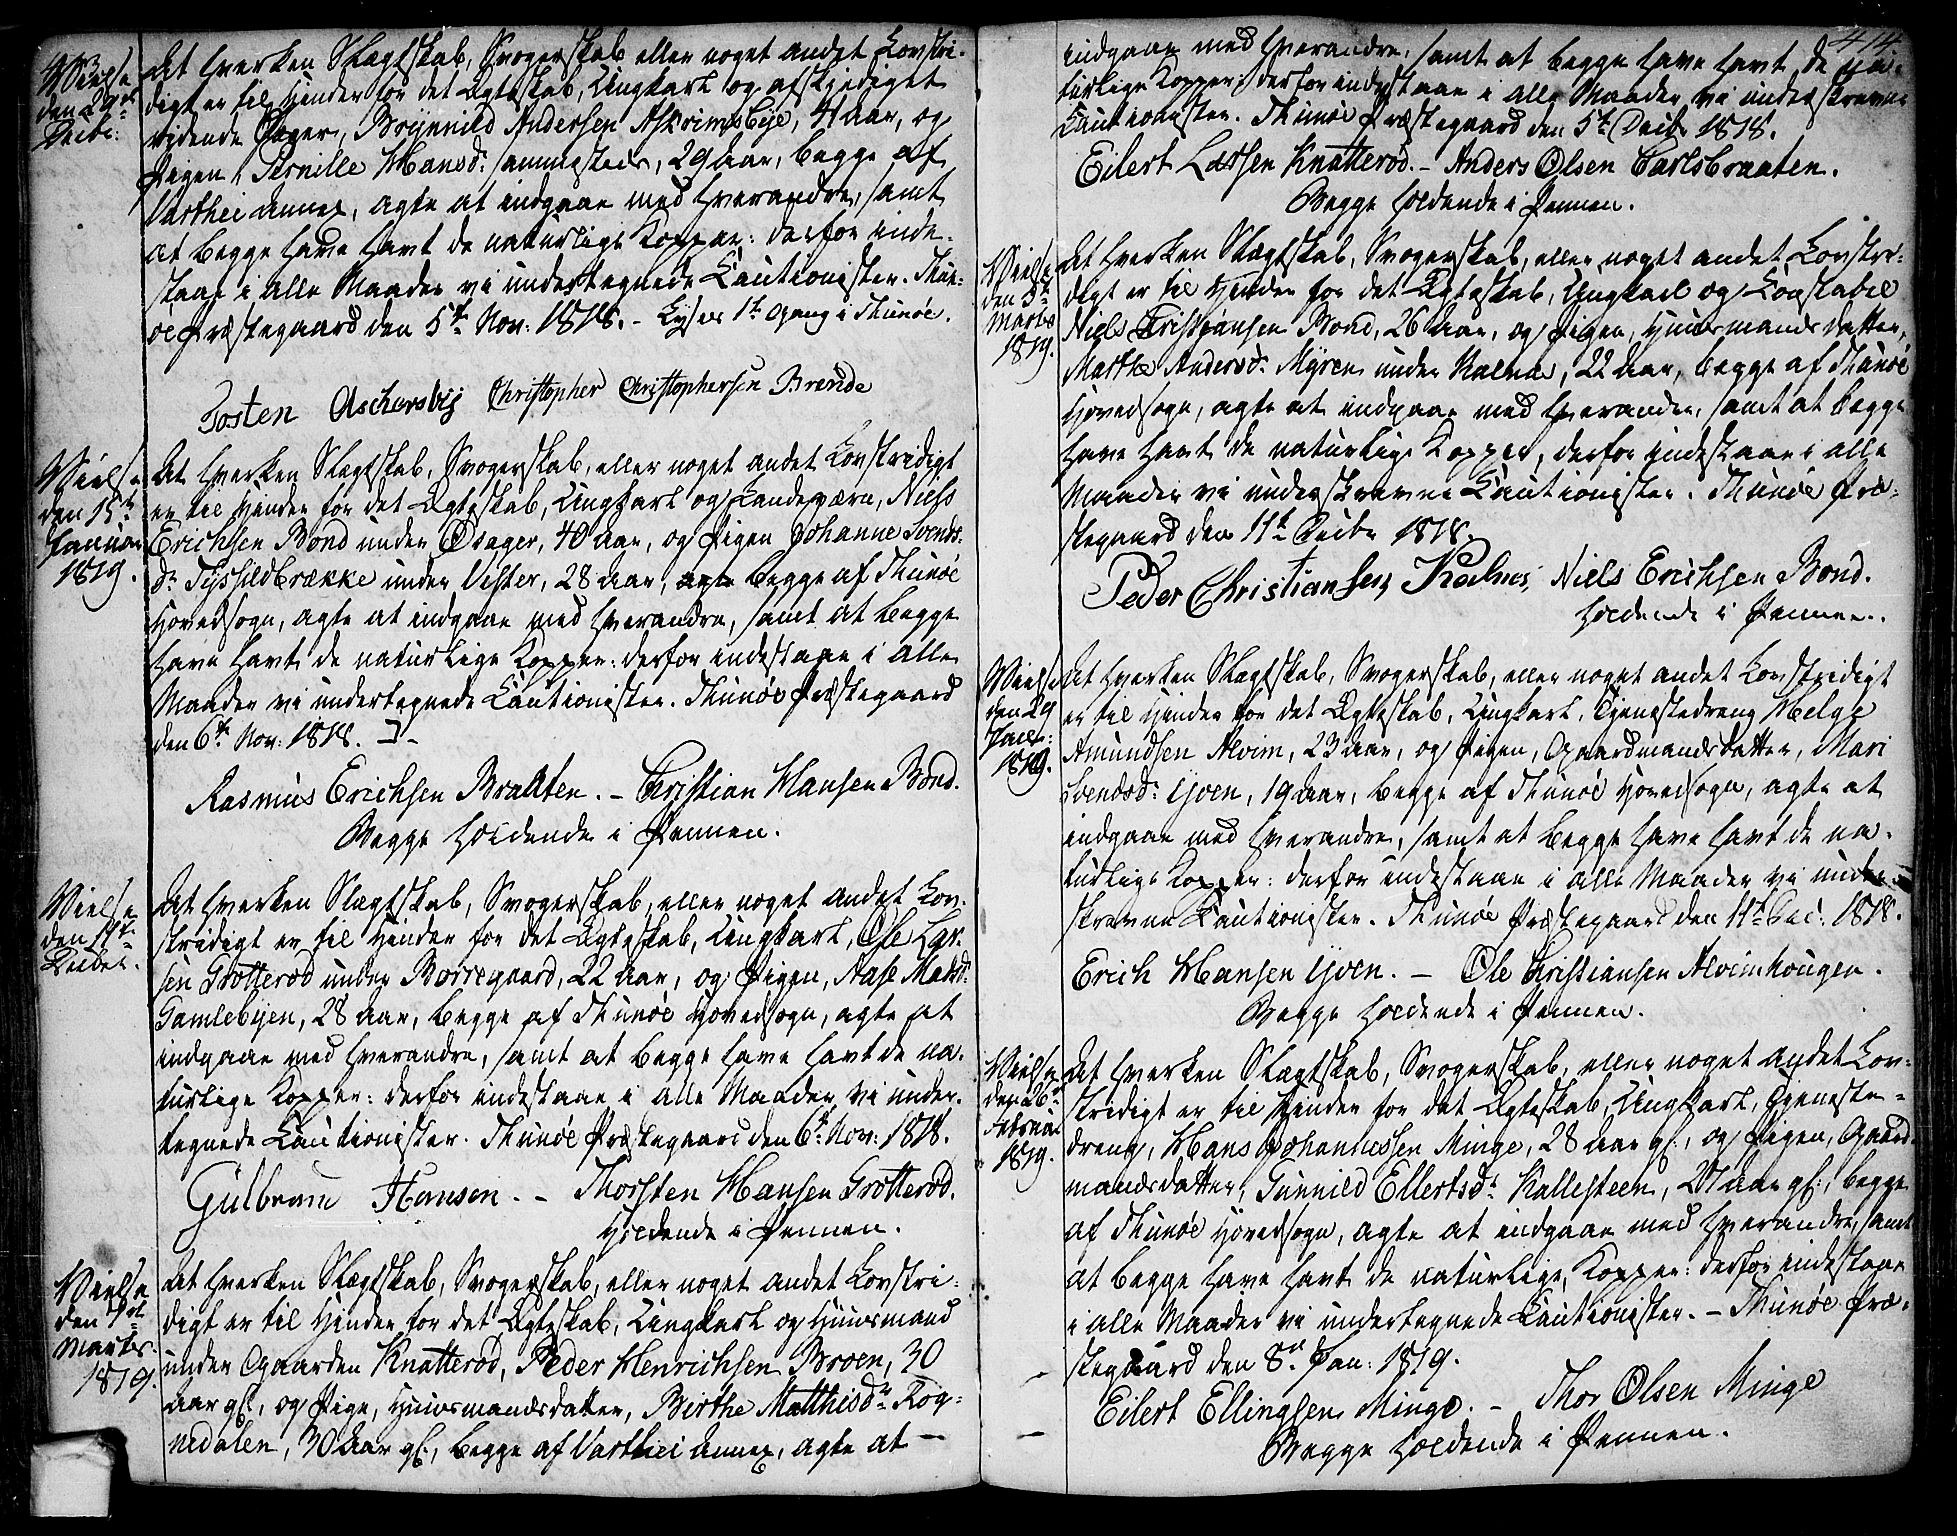 413
Vielse
den 29de
Decbr:
At hverken Slægtskab, Svogerskab eller noget andet Lovstri-
digt er til Hinder for det Ægteskab, Ungkarl og afskjediget
ridende Jæger, Brynnild Andersen Askrimsbye, 41 Aar, og
Pigen Pernille Hansd: sammesteds, 29 Aar, begge af
Varthei Annex, agte at indgaae med hverandre, samt
at begge have havt de naturlige Kopper: derfor inde-
staae i alle Maader vi undertegnede Cautionister. Thun-
øe Præstegaard den 5te Nov: 1818. - Lyses 1te Gang i Thunøe.
Tosten Aschersbÿ Christopher Christophersen Brende
Vielse
den 15de
Januar
1819.
At hverken Slægtskab, Svogerskab, eller noget andet Lovstridigt
er til Hinder for det Ægteskab, Ungkarl og Landeværn, Niels
Erichsen Bond under Øsager, 40 Aar, og Pigen Johanne Svends-
dr Tyshildbrække under Vister, 28 Aar, begge af Thunøe
Hovedsogn, agte at indgaae med hverandre, samt at begge
have havt de naturlige Kopper: derfor indestaae i alle
Maader vi undertegnede Cautionister. Thunøe Præstegaard
den 6te Nov: 1818.
Rasmus Erichsen Braaten. - Christian Hansen Bond.
Begge holdende i Pennen.
Vielse
den
Decbr.
At hverken Slægtskab, Svogerskab, eller noget andet Lov-
stridigt er til Hinder for det Ægteskab, Ungkarl, Ole Lar-
sen Grotterød under Borregaard, 22 Aar, og Pigen, Aase Madsdr:
Gamlebyen, 28 Aar, begge af Thunøe Hovedsogn, agte at
indgaae med hverandre, samt at begge have havt de na-
turlige Kopper: derfor indestaae i alle Maader vi under-
tegnede Cautionister. Thunøe Præstegaard den 6te Nov: 1818.
Gulbram Hansen. - Thorsten Hansen Grotterød.
Holdende i Pennen.
Vielse
den
Marts.
1819.
At hverken Slægtskab, Svogerskab, eller noget andet Lovstri-
digt er til Hinder for det Ægteskab, Ungkarl og Huusmand
under Gaarden Knatterød, Peder Henrichsen Broen, 30
Aar gl:, og Pige, Huusmandsdatter, Birthe Matthisdr Kog-
nedalen, 30 Aar gl:, begge af Varthei Annex, agte at -
414
indgaae med hverandre, samt at begge have havt de na-
turlige Kopper; derfor indestaae i alle Maader vi underskrevne
Cautionister. Thunøe Præstegaard den 5te Decbr 1818.
Eilert Larsen Knatterød. - Anders Olsen Carlsbraaten.
Begge holdende i Pennen.
Vielse
den 5te
Marts
1819.
At hverken Slægtskab, Svogerskab, eller noget andet Lovstri-
digt er til Hinder for det Ægteskab, Ungkarl og Constabel
Niels Christiansen Bond, 26 Aar, og Pigen, Huusmandsdatter,
Marthe Andersdr. Myren under Kalnes, 22 Aar, begge af Thunøe
Hovedsogn, agte at indgaae med hverandre, samt at begge
have havt de naturlige Kopper, derfor indestaae i alle
Maader vi underskrevne Cautionister. Thunøe Præ-
stegaard den 11te Decbr 1818.
Peder Christiansen Kalnes, Niels Erichsen Bond.
holdende i Pennen.
Vielse
den 29
Janr:
1819.
At hverken Slægtskab, Svogerskab, eller noget andet Lovstridigt
er til Hinder for det Ægteskab, Ungkarl, Tjenestedreng Helge
Amundsen Alvim, 23 Aar, og Pigen, Gaardmandsdatter, Mari
Svendsdr: Yven, 19 Aar, begge af Thunøe Hovedsogn, agte at
indgaae med hverandre, samt at begge have havt de na-
turlige Kopper: derfor indestaae i alle Maader vi under-
skrevne Cautionister. Thunøe Præstegaard den 11te Dec: 1818.
Erich Hansen Yven. - Ole Christiansen Alvimhougen.
Begge holdende i Pennen.
Vielse
den 26de
Februar
1819.
At hverken Slægtskab, Svogerskab, eller noget andet Lov-
stridigt er til Hinder for det Ægteskab, Ungkarl, Tjeneste-
dreng, Hans Johannessen Minge, 28 Aar gl:, og Pigen, Gaard-
mandsdatter, Gunnild Ellertsdr. Kallesteen, 27 Aar gl:, begge
af Thunøe Hovedsogn, agte at indgaae med hverandre, samt
at begge have havt de naturlige Kopper: derfor indestaae
i alle Maader vi undertegnede Cautionister. - Thunøe Præ-
stegaard den 8de Jan: 1819.
Eilert Ellingsen Minge. - Thor Olsen Minge
Begge holdende i Pennen.